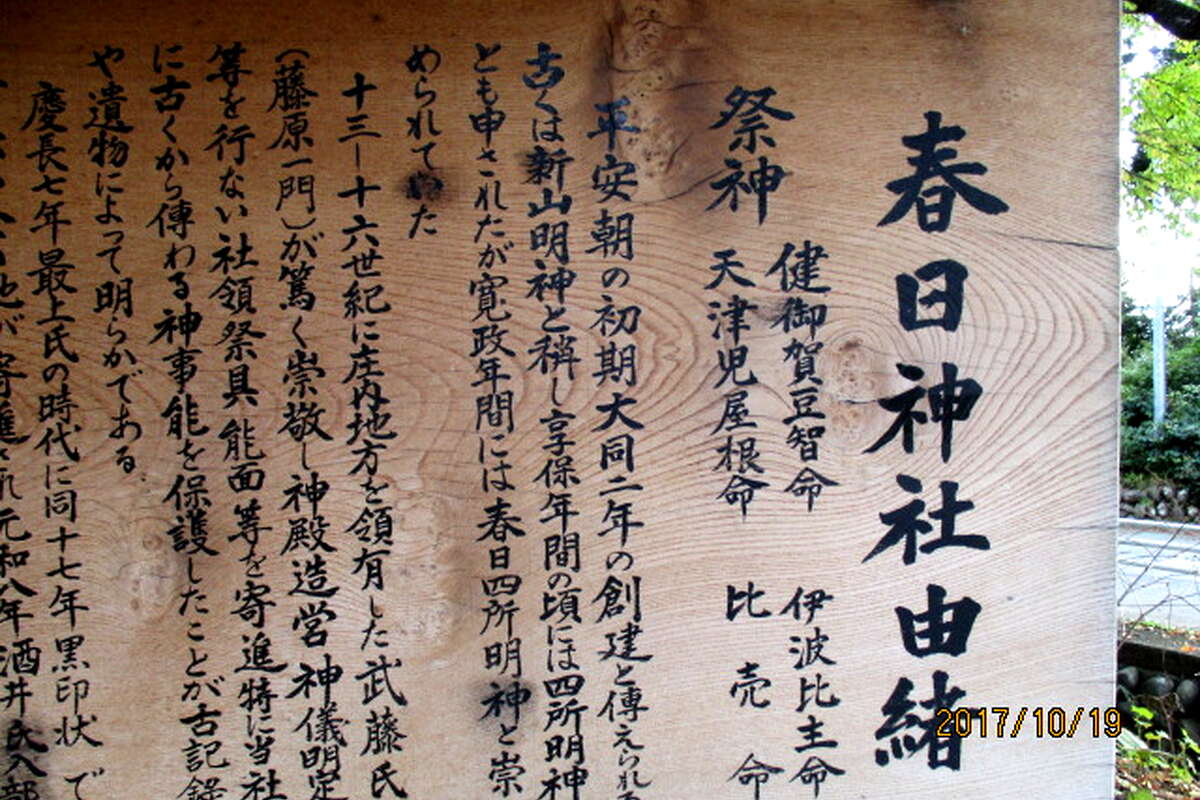 春日神社由緒
祭神
健御賀豆智命 伊波比主命
天津児屋根命 比売命
平安朝の初期大同二年の創建と傳えられ
古くは新山明神と稱し享保年間の頃には四所明神
とも申されたが寛政年間には春日四所明神と崇
められていた
十三―十六世紀に庄内地方を領有した武藤氏
(藤原一門)が篤く崇敬し神殿造営神儀明定
等を行ない社領祭具能面等を寄進特に当社
に古くから傳わる神事能を保護したことが古記録
や遺物によって明らかである。
慶長七年最上氏の時代に同十七年黒印状で
地が寄進され元和八年酒井氏入部
2017/10/19